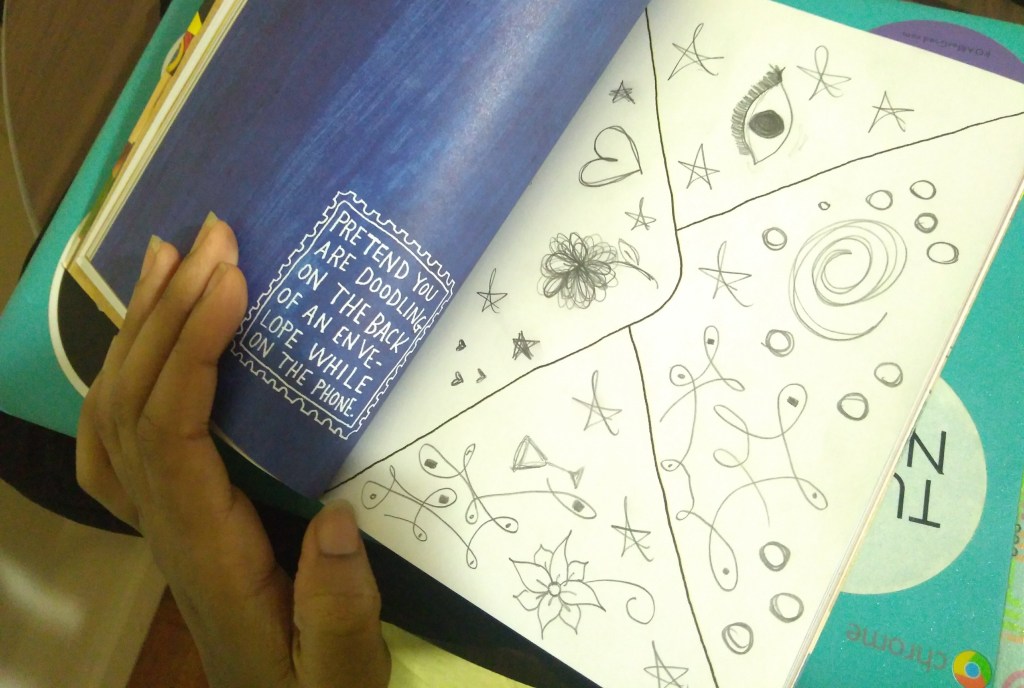 PRETEND YOU
ARE DOODLING
ON THE BACK
OF AN ENVE-
LOPE WHILE
ON THE PHONE.
chrome